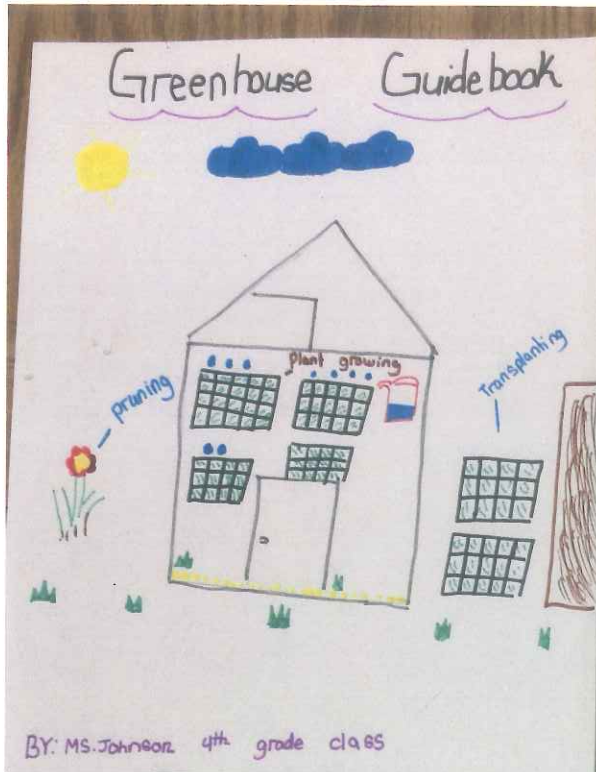 Greenhouse Guidebook
plant growing
pruning
Transplanting
BY: MS. Johnson 4th grade class